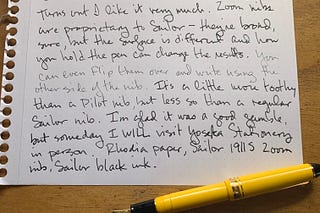 Turns out I like it very much. Zoom nibs
are proprietary to Sailor – they're broad,
sure, but the surface is different and how
you hold the pen can change the results. You
can even flip them over and write using the
other side of the nib. It's a little more toothy
than a Pilot nib, but less so than a regular
Sailor nib. I'm glad it was a good gamble,
but someday I will visit Yoseka Stationery
in person Rhodia paper, Sailor 1911S Zoom
nib, Sailor black ink.